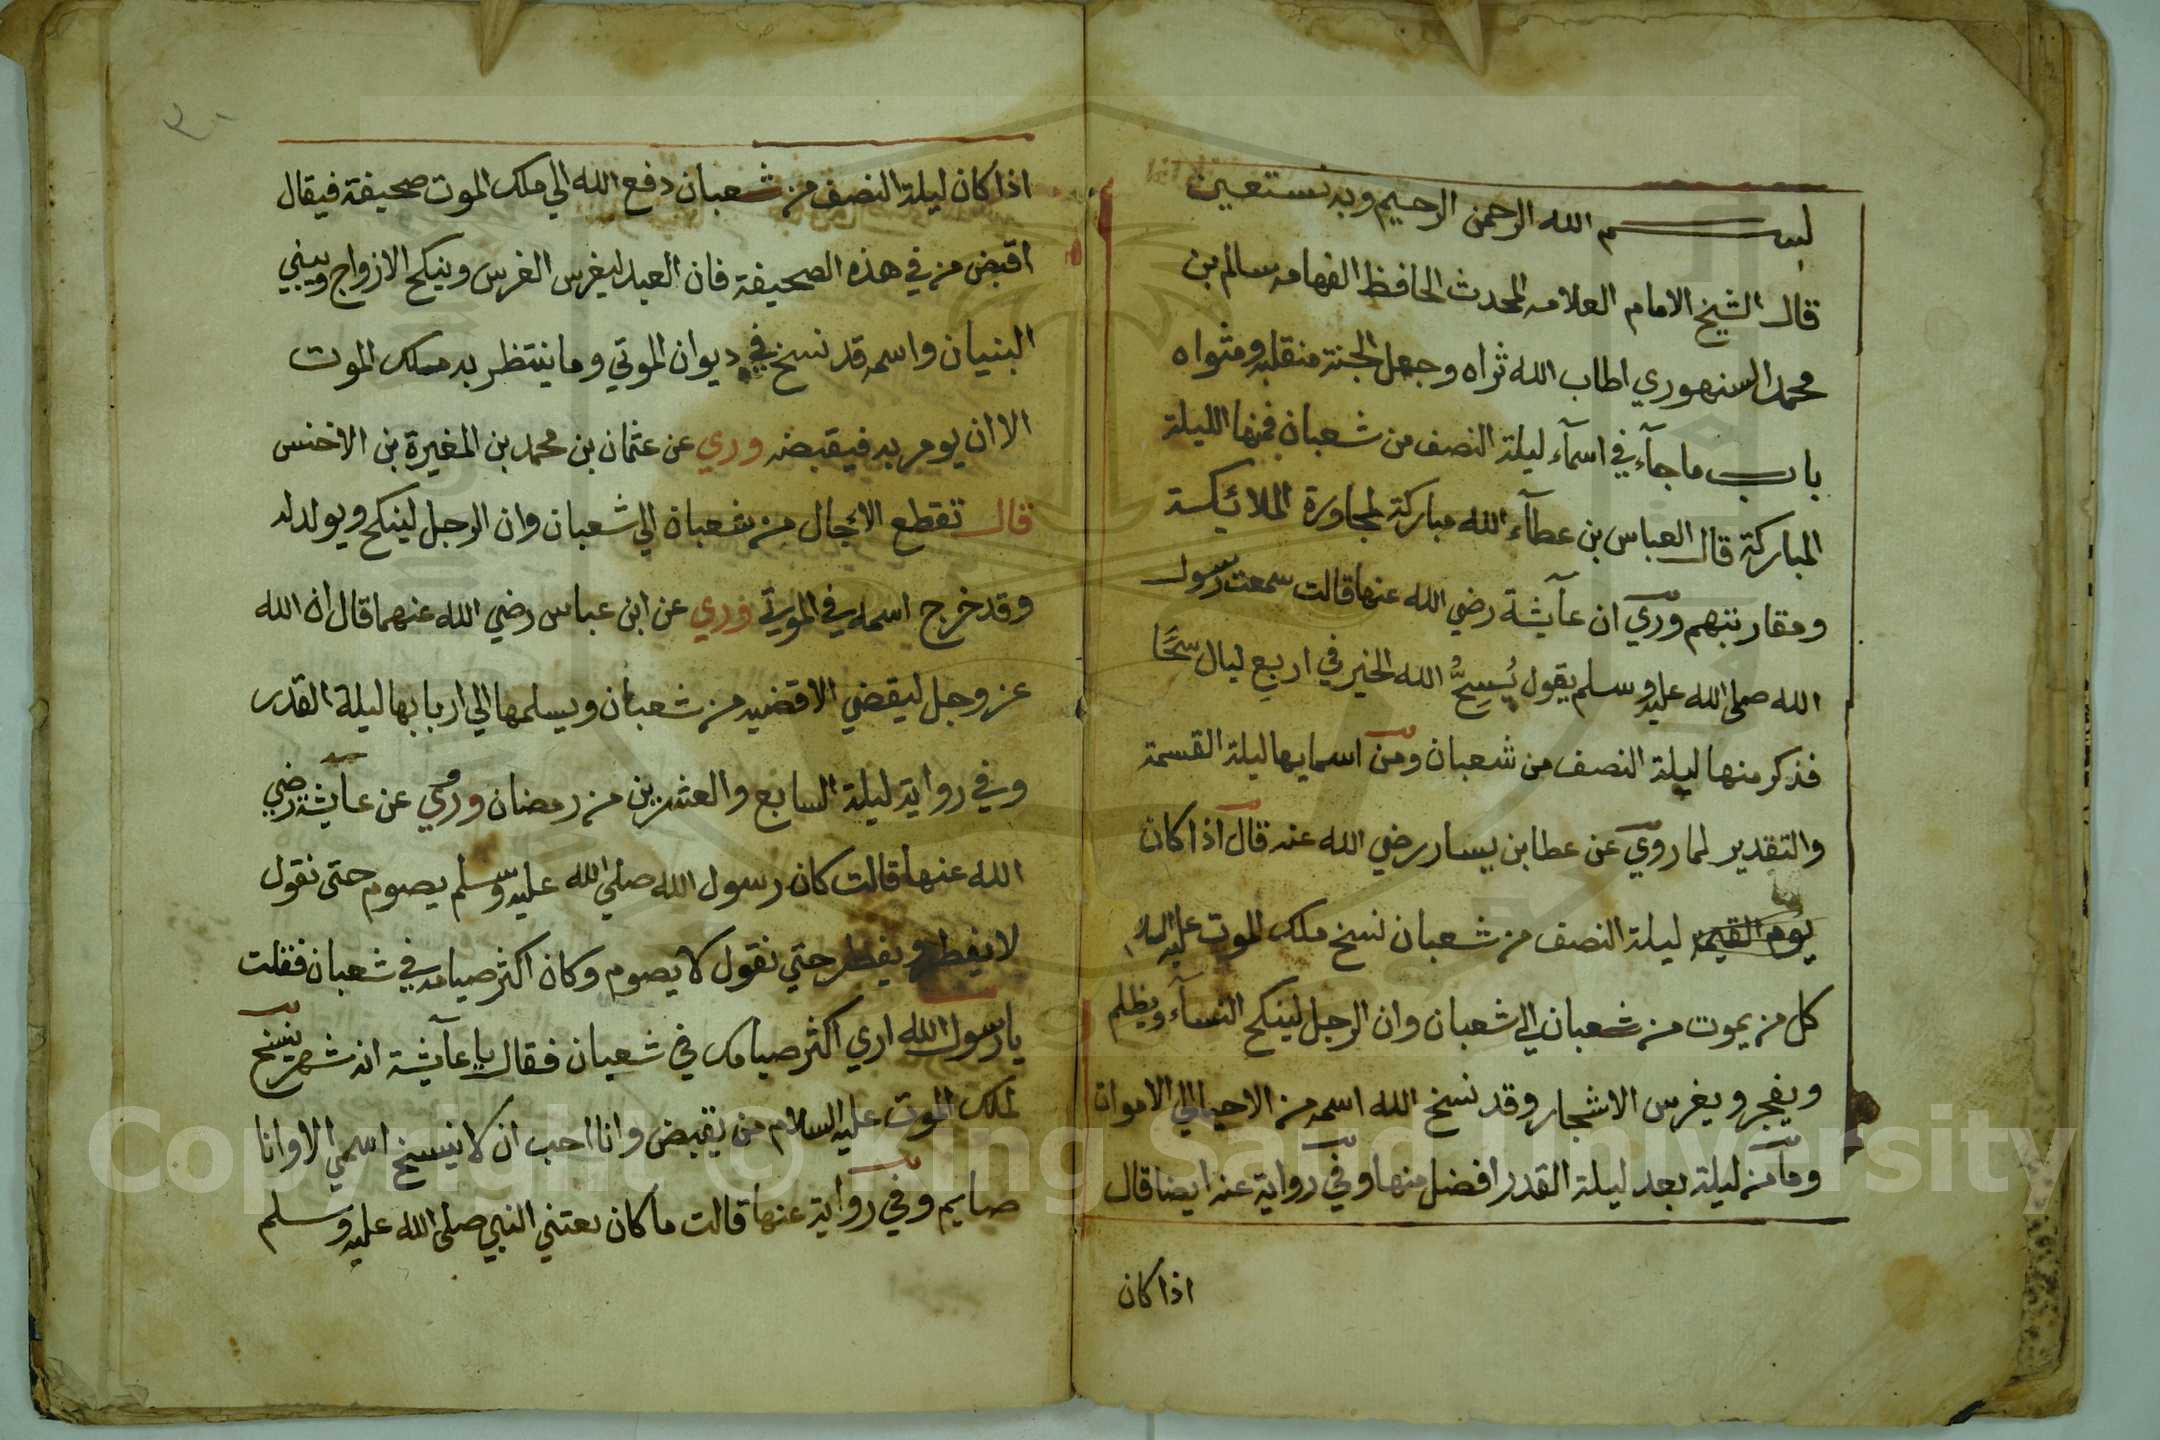 بسم الله الرحمن الرحيم وبه نستعين
قال الشيخ الامام العلامه المحدث الحافظ الفهامه سالم بن
محمد السنهوري اطاب الله ثراه وجعل الجنة منقلبه ومثواه
باب ما جآء في اسمآء ليلة النصف من شعبان فمنها الليلة
المباركة قال العباس بن عطآء الله مباركة لمجاورة الملائيكة
ومقاربتهم وروي ان عآيشة رضي الله عنها قالت سمعت رسول
الله صلى الله عليه وسلم يقول يُسِحُّ الله الخير في اربع ليال سَحًّا
فذكر منها ليلة النصف من شعبان ومن اسمايها ليلة القسمة
والتقدير لما روي عن عطا بن يسار رضي الله عنه قال اذا كان
يوم القيمة ليلة النصف من شعبان نسخ ملك الموت عليه السلام
كل من يموت من شعبان الي شعبان وان الرجل لينكح النسآء ويظلم
ويفجر ويغرس الاشجار وقد نسخ الله اسمه من الاحيا الي الاموات
وما من ليلة بعد ليلة القدر افضل منها وفي رواية عنه ايضا قال
اذا كان
اذا كان ليلة النصف من شعبان دفع الله الي ملك الموت صحيفة فيقال
اقبض من في هذه الصحيفة فان العبد ليغرس الغرس وينكح الازواج ويبني
البنيان واسمه قد نسخ في ديوان الموتي وما ينتظر به ملك الموت
الا ان يومر به فيقبضه وروي عن عثمان بن محمد بن المغيرة بن الاخنس
قال تقطع الاجال من شعبان الي شعبان وان الرجل لينكح ويولد له
وقد خرج اسمه في الموتي وروي عن ابن عباس رضي الله عنهما قال ان الله
عز وجل ليقضي الاقضيه من شعبان ويسلمها الي اربابها ليلة القدر
وفي رواية ليلة السابع والعشرين من رمضان وروي عن عآيشة رضي
الله عنها قالت كان رسول الله صلي الله عليه وسلم يصوم حتى نقول
لا يفطر ويفطر حتي نقول لا يصوم وكان اكثر صيامه في شعبان فقلت
يا رسول الله اري اكثر صيامك في شعبان فقال يا عآيشة انه شهر ينسخ
لملك الموت عليه السلام من يقبض وانا احب ان لا ينسخ اسمي الا وانا
صايم وفي رواية عنها قالت ما كان النبي صلى الله عليه وسلم
Copyright © King Saud University